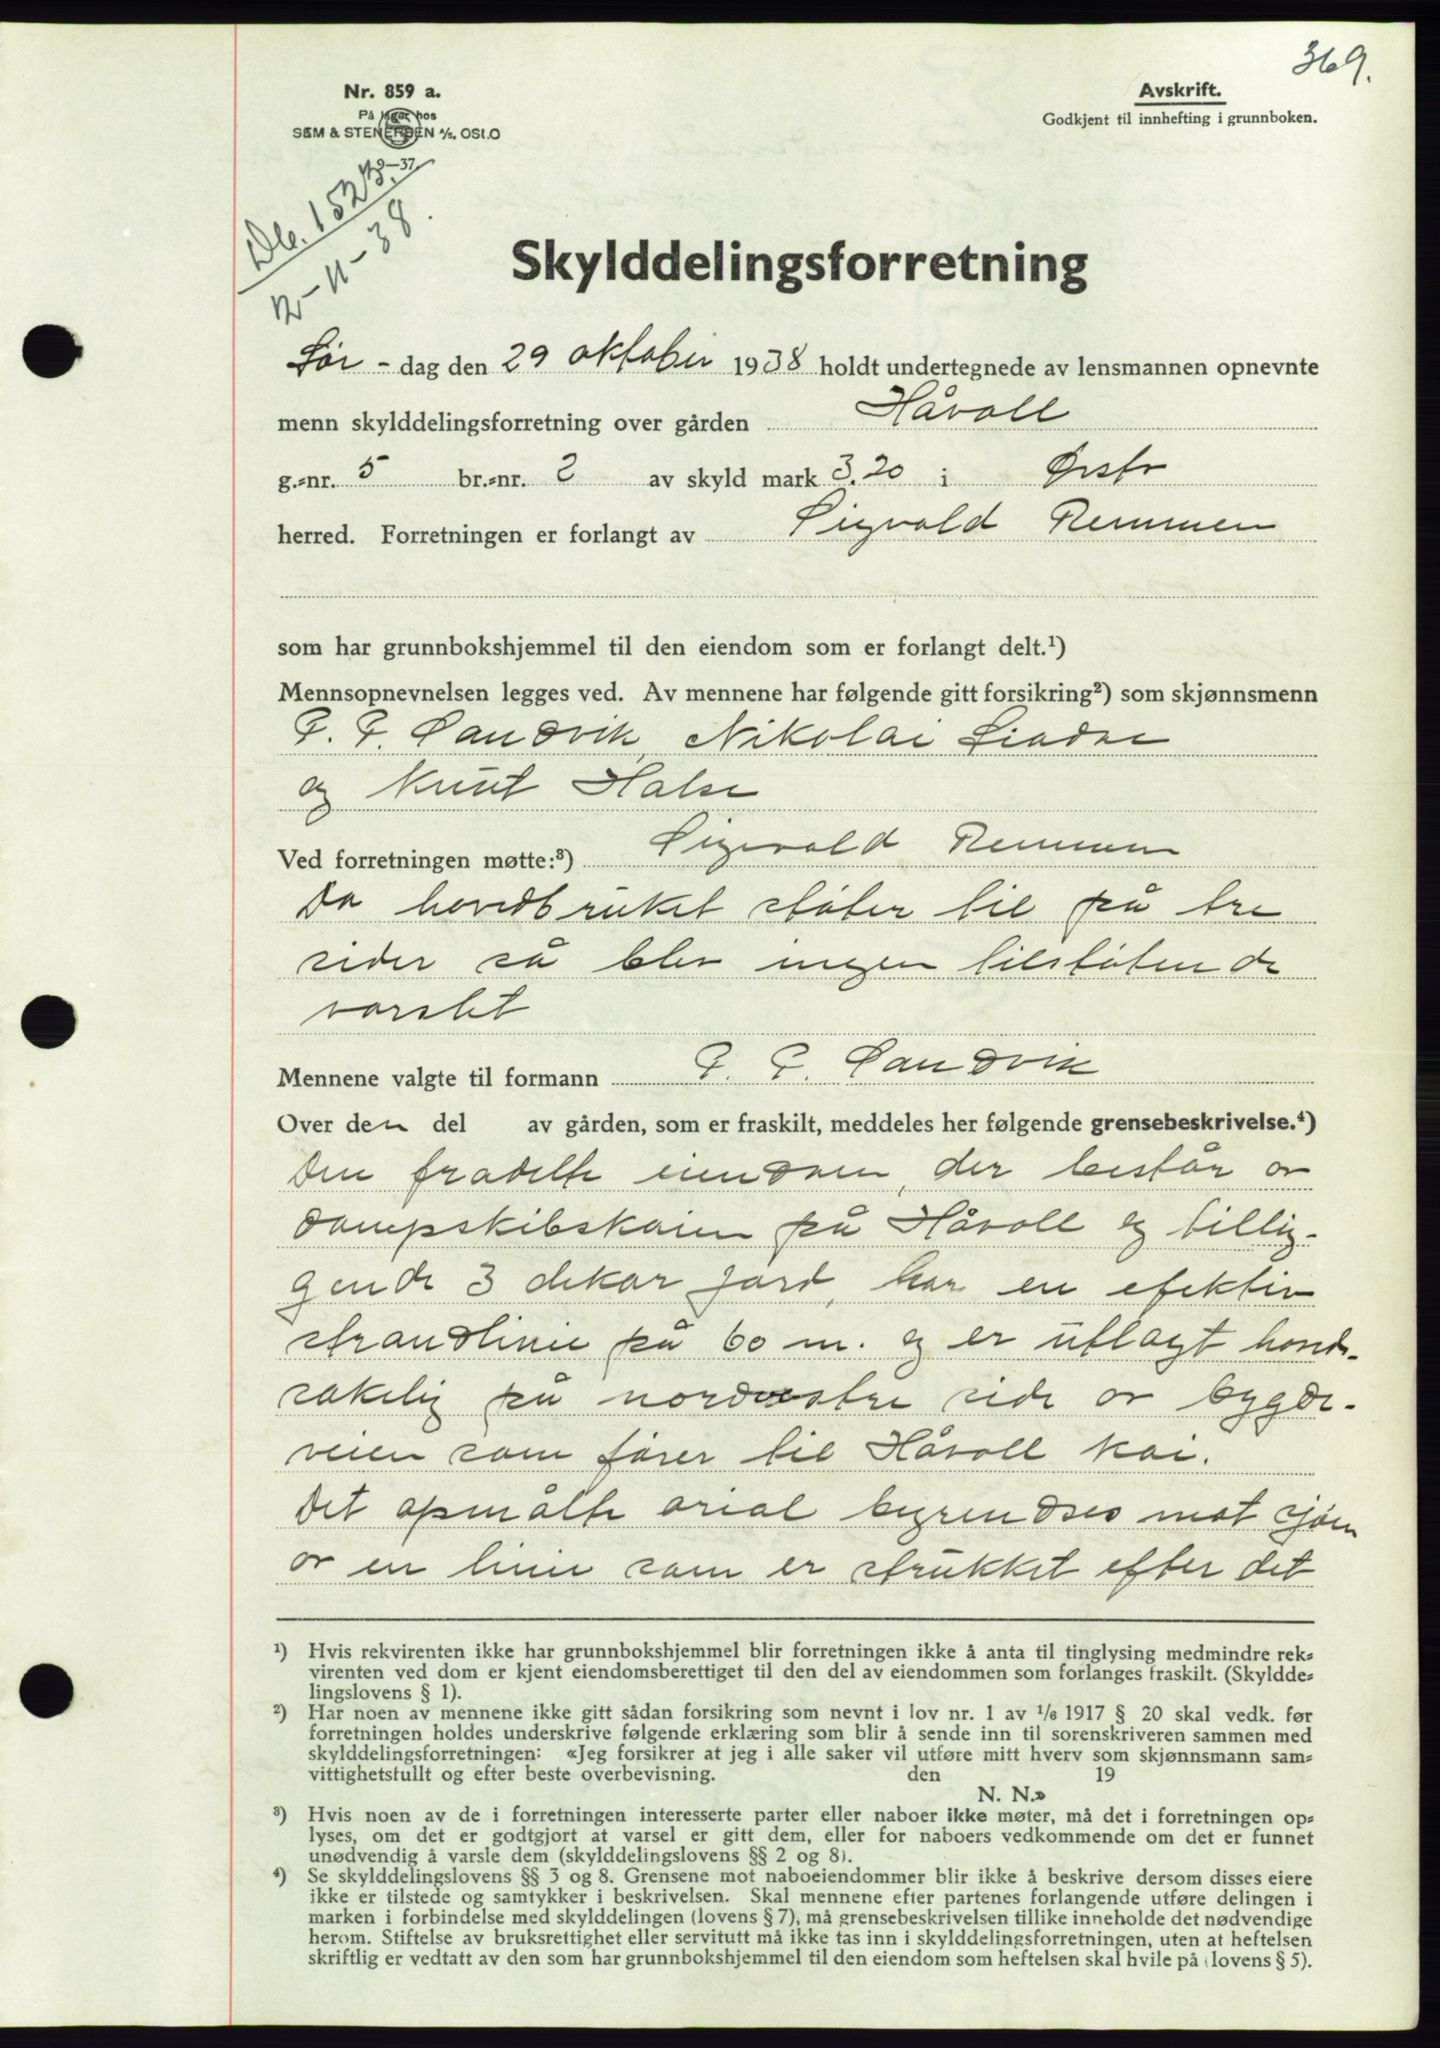 369.
Nr. 859 a.
På lager hos
SEM & STENERSEN A/S, OSLO
9—37.
Avskrift.
Godkjent til innhefting i grunnboken.
Db. 1523.
12-11-38.
Skylddelingsforretning
Lør - dag den 29 oktober 1938 holdt undertegnede av lensmannen opnevnte
menn skylddelingsforretning over gården Håvoll
g.=nr. 5 br.=nr. 2 av skyld mark 3.20 i Ørsta
herred. Forretningen er forlangt av Sigvald Remmen
som har grunnbokshjemmel til den eiendom som er forlangt delt.¹)
Mennsopnevnelsen legges ved. Av mennene har følgende gitt forsikring²) som skjønnsmenn
P. P. Sandvik, Nikolai
og Knut Halse
Ved forretningen møtte:³) Sigvald Remmen
Da hovedbruket støter til på tre
sider så blev ingen tilstøtende
varslet
Mennene valgte til formann P. P. Sandvik
Over den del av gården, som er fraskilt, meddeles her følgende grensebeskrivelse.⁴)
Den fradelte eiendom, der består av
dampskibskaien på Håvoll og tillig-
gende 3 dekar jord, har en efektiv
strandlinie på 60 m. og er utlagt hoved-
sakelig på nordvestre side av bygde-
veien som fører til Håvoll kai.
Det opmålte areal begrendses mot sjøen
av en linie som er strukket efter det
¹) Hvis rekvirenten ikke har grunnbokshjemmel blir forretningen ikke å anta til tinglysing medmindre rek=
virenten ved dom er kjent eiendomsberettiget til den del av eiendommen som forlanges fraskilt. (Skyldde=
lingslovens § 1).
²) Har noen av mennene ikke gitt sådan forsikring som nevnt i lov nr. 1 av 1/6 1917 § 20 skal vedk. før
forretningen holdes underskrive følgende erklæring som blir å sende inn til sorenskriveren sammen med
skylddelingsforretningen: «Jeg forsikrer at jeg i alle saker vil utføre mitt hverv som skjønnsmann sam=
vittighetsfullt og efter beste overbevisning. den 19
N. N.»
³) Hvis noen av de i forretningen interesserte parter eller naboer ikke møter, må det i forretningen op=
lyses, om det er godtgjort at varsel er gitt dem, eller for naboers vedkommende om det er funnet
unødvendig å varsle dem (skylddelingslovens §§ 2 og 8).
⁴) Se skylddelingslovens §§ 3 og 8. Grensene mot naboeiendommer blir ikke å beskrive dersom disses eiere
ikke er tilstede og samtykker i beskrivelsen. Skal mennene efter partenes forlangende utføre delingen i
marken i forbindelse med skylddelingen (lovens § 7), må grensebeskrivelsen tillike inneholde det nødvendige
herom. Stiftelse av bruksrettighet eller servitutt må ikke tas inn i skylddelingsforretningen, uten at heftelsen
skriftlig er vedtatt av den som har grunnbokshjemmel til den eiendom som heftelsen skal hvile på (lovens § 5).